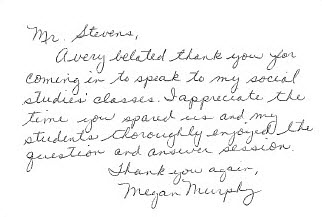 Mr. Stevens,
A very belated thank you for
coming in to speak to my social
studies' classes. I appreciate the
time you spared us and my
students thoroughly enjoyed the
question and answer session.
Thank you again,
Megan Murphy